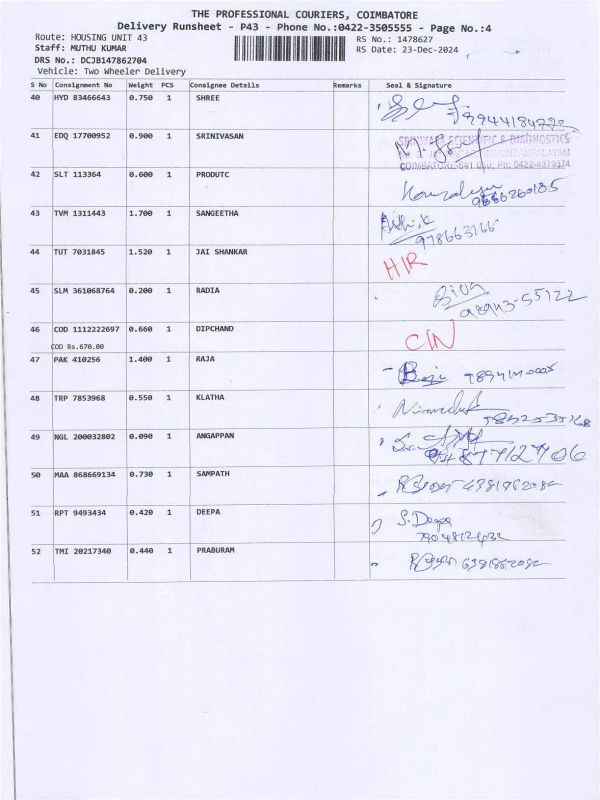 THE PROFESSIONAL COURIERS, COIMBATORE
Delivery Runsheet - P43 - Phone No.:0422-3505555 - Page No.:4
Route: HOUSING UNIT 43 RS No.: 1478627
Staff: MUTHU KUMAR RS Date: 23-Dec-2024
DRS No.: DCJB147862704
Vehicle: Two Wheeler Delivery
S No Consignment No Weight PCS Consignee Details Remarks Seal & Signature
40 HYD 83466643 0.750 1 SHREE
41 EDQ 17700952 0.900 1 SRINIVASAN
SRINIVASA SCIENTIFIC & DIAGNOSTICS
42 SLT 113364 0.600 1 PRODUTC
43 TVM 1311443 1.700 1 SANGEETHA
44 TUT 7031845 1.520 1 JAI SHANKAR HIR
45 SLM 361068764 0.200 1 RADIA Siva
98943-55122
46 COD 1112222697 0.660 1 DIPCHAND CIN
COD Rs.670.00
47 PAK 410256 1.400 1 RAJA
48 TRP 7853968 0.550 1 KLATHA
49 NGL 200032802 0.090 1 ANGAPPAN
50 MAA 868669134 0.730 1 SAMPATH
51 RPT 9493434 0.420 1 DEEPA S. Deepa
52 TMI 20217340 0.440 1 PRABURAM